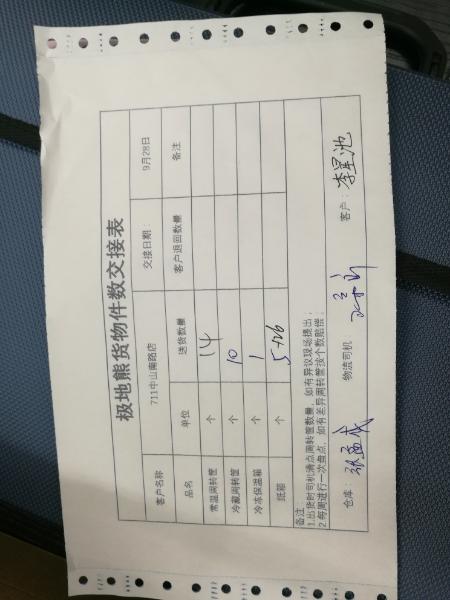 极地熊货物件数交接表
客户名称 711中山南路店 交接日期： 9月28日
品名 单位 送货数量 客户退回数量 备注
常温周转筐 个 14
冷藏周转筐 个 10
冷冻保温箱 个 1
纸箱 个 5+26
备注
1.出货时司机清点周转筐数量，如有异议现场提出；
2.每周进行一次盘点，如有差异周转筐按个数赔偿；
仓库： 张孟成 物流司机 客户： 李星池